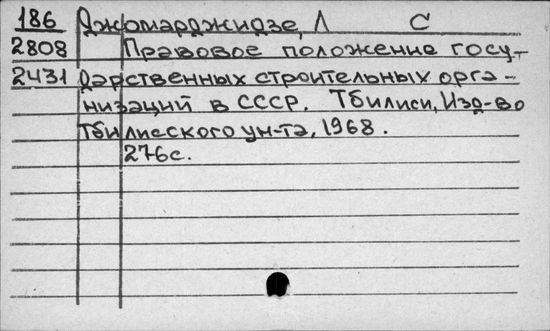 186 Джомарджидзе, Л С
2808 Правовое положение госу-
2431 дарственных строительных орга-
низаций в СССР. Тбилиси, Изд-во
Тбилисского ун-та, 1968.
276с.